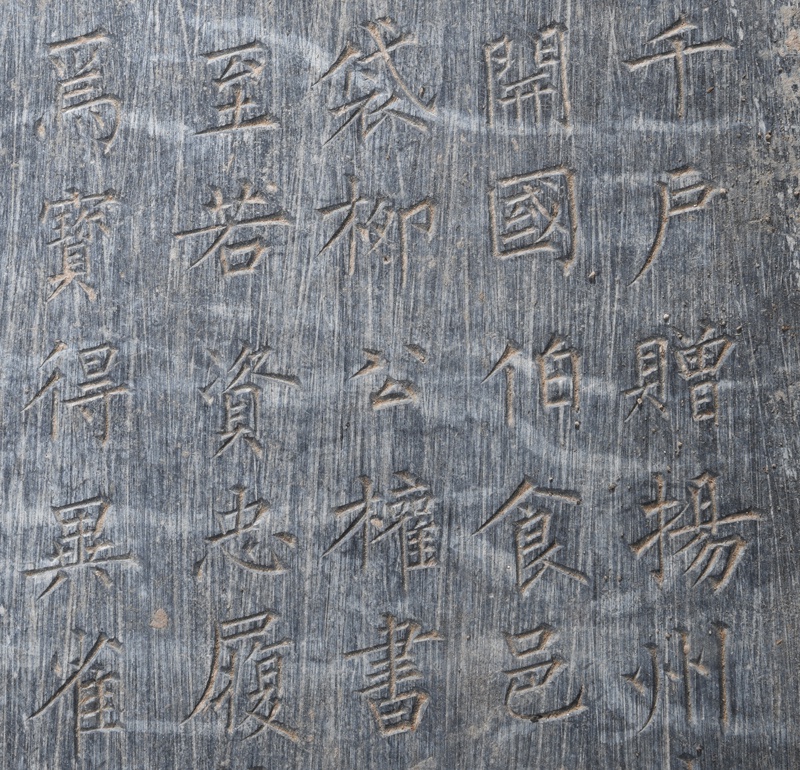 千戶贈揚州
開國伯食邑
袋柳公權書
至若資忠履
為寶得異雀